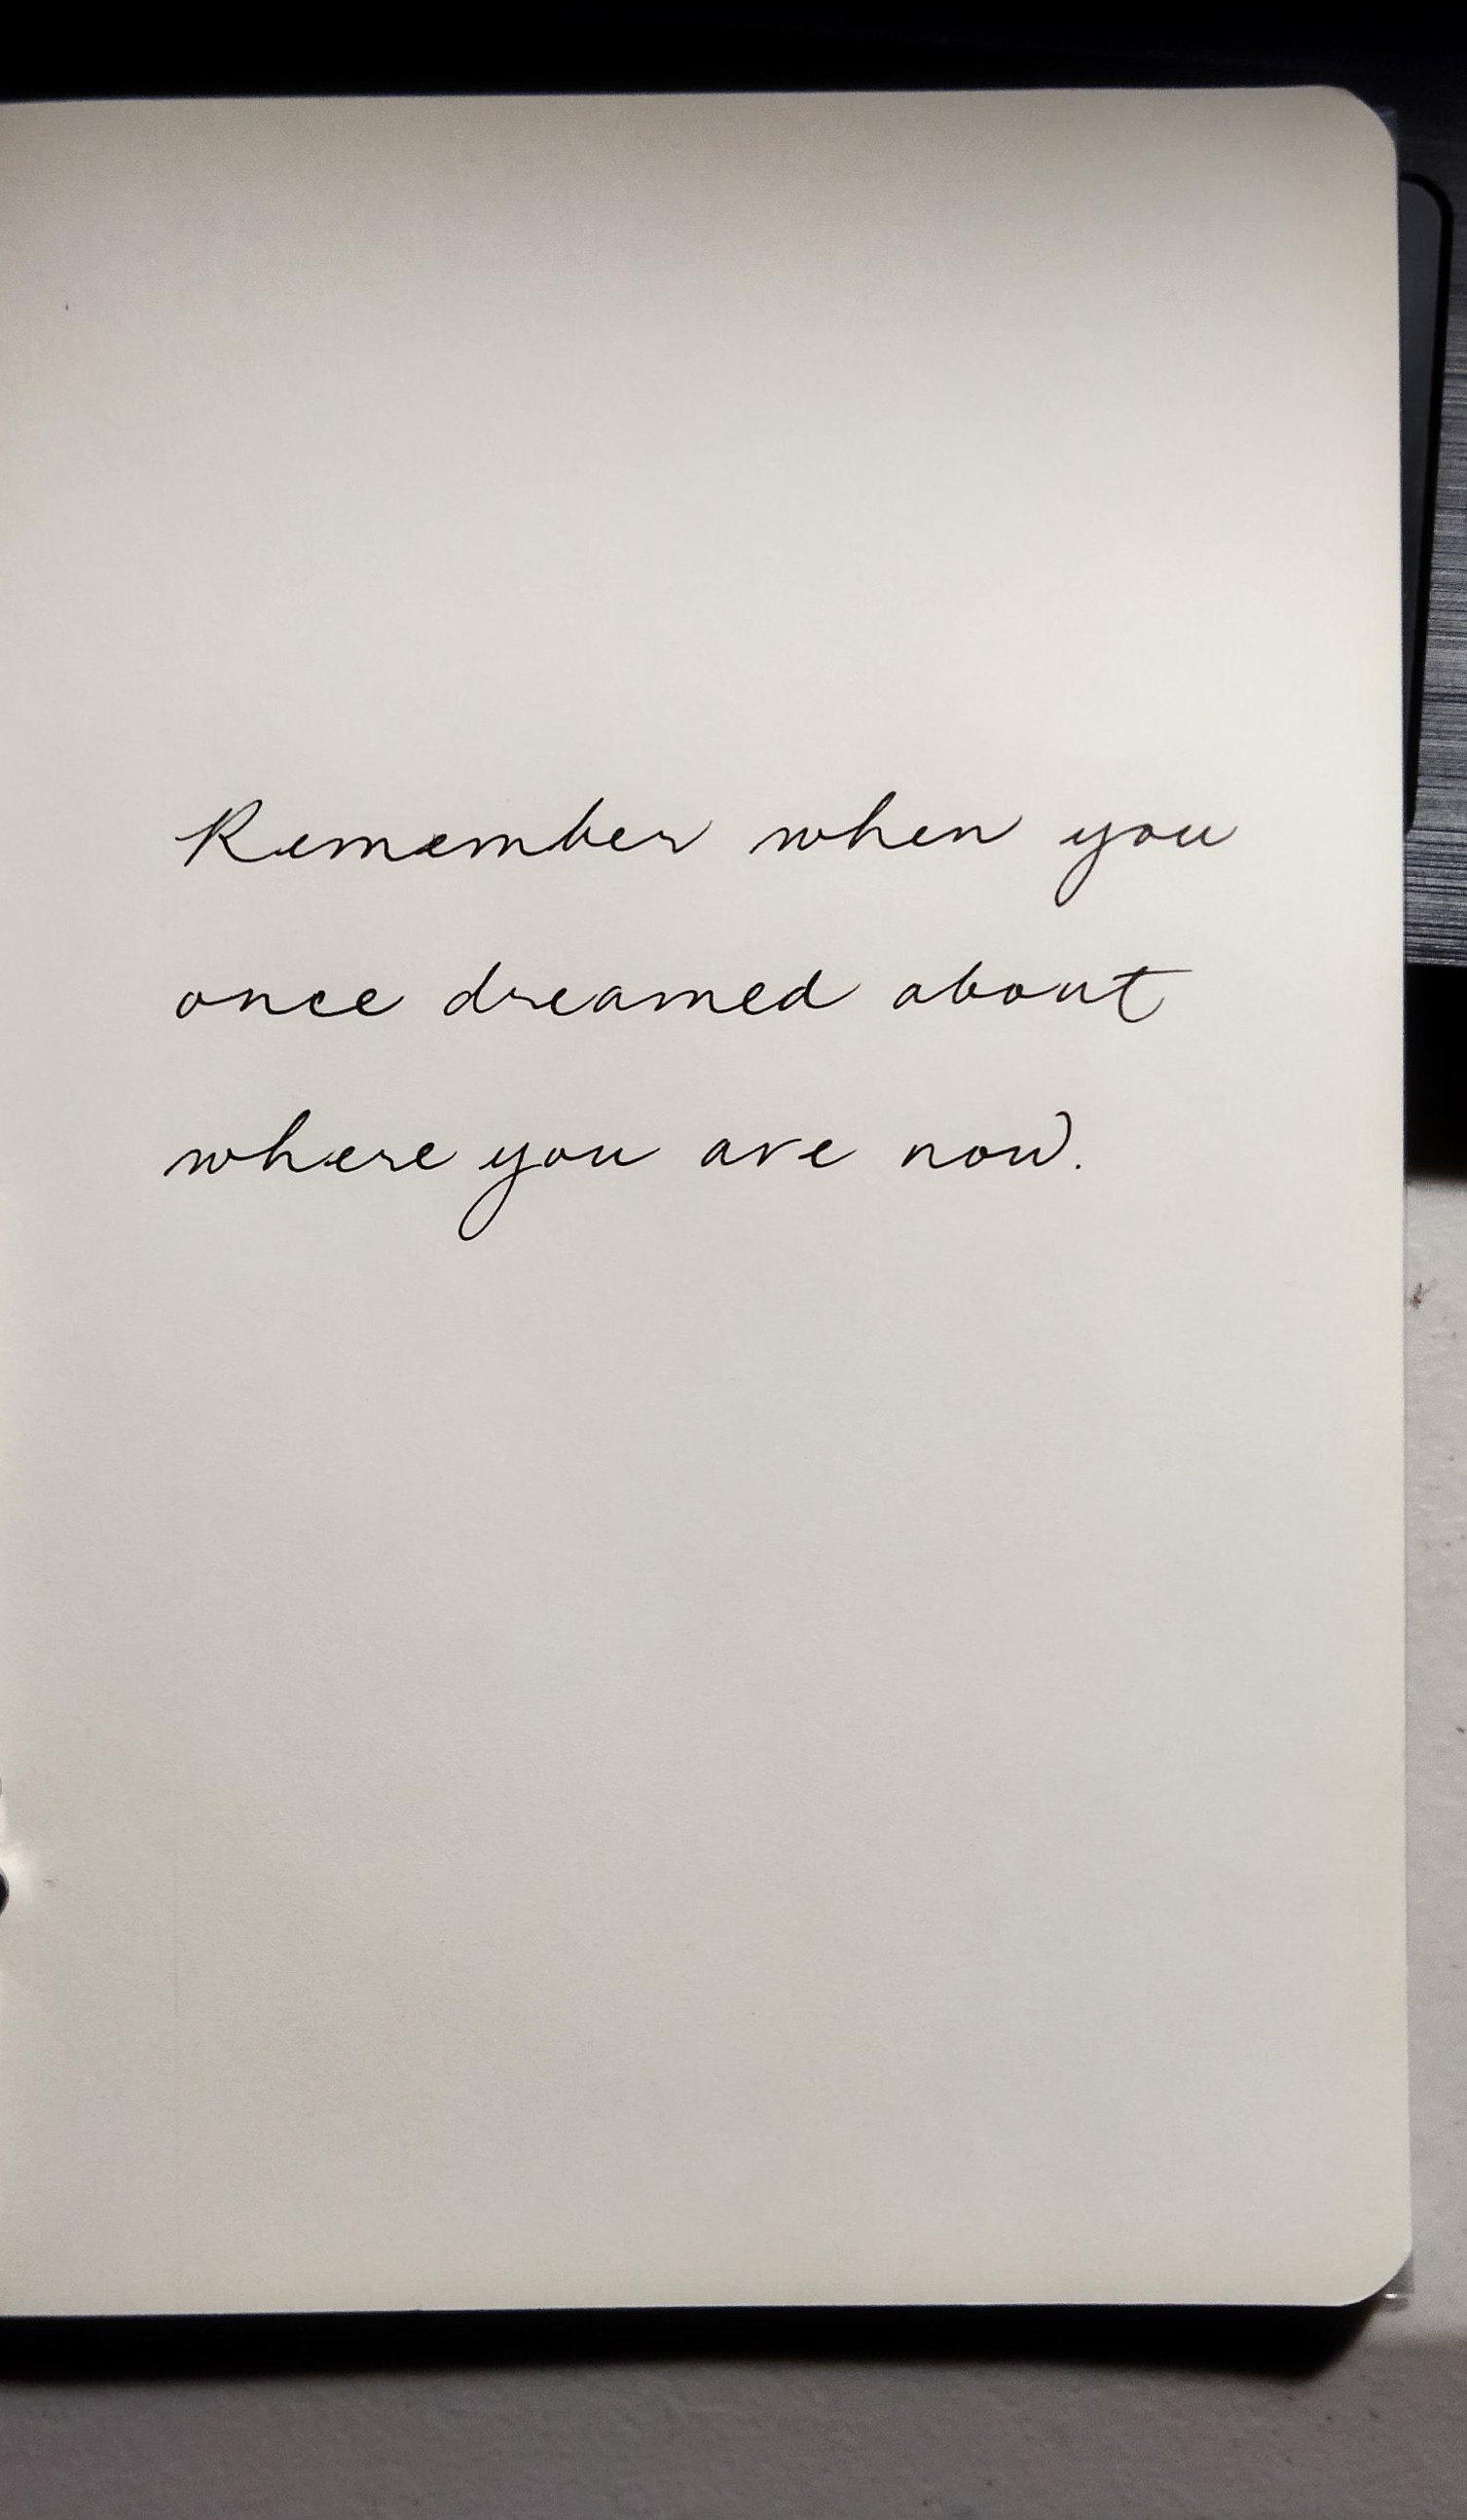 Remember when you
once dreamed about
where you are now.